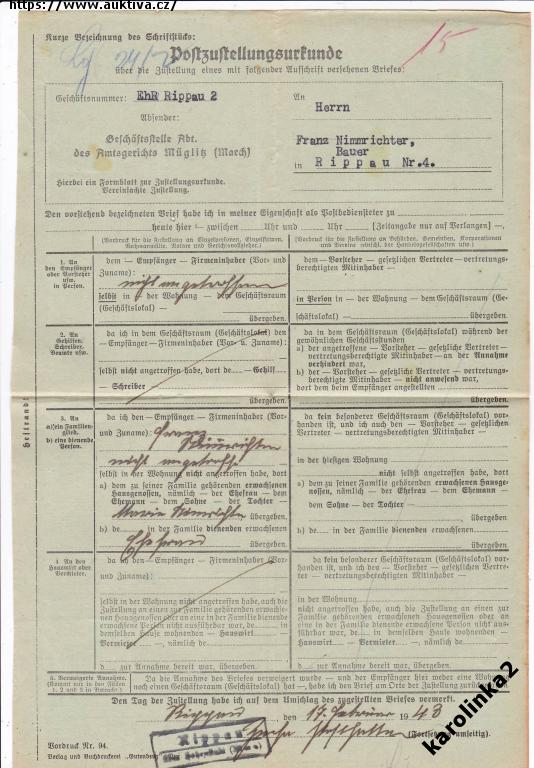 https://www.auktiva.cz/
Kurze Bezeichnung des Schriftstücks:
Postzustellungsurkunde
15
über die Zustellung eines mit folgender Aufschrift versehenen Briefes:
Geschäftsnummer: EhR Rippau 2
Absender:
Geschäftsstelle Abt.
des Amtsgerichts Müglitz (March)
Hierbei ein Formblatt zur Zustellungsurkunde.
Vereinfachte Zustellung.
An
Herrn
Franz Nimmrichter,
Bauer
in Rippau Nr.4.
Den vorstehend bezeichneten Brief habe ich in meiner Eigenschaft als Postbediensteter zu
heute hier — zwischen Uhr und Uhr — [Zeitangabe nur auf Verlangen] —.
(Vordruck für die Zustellung an Einzelpersonen, Einzelfirmen, Rechtsanwälte, Notare und Gerichtsvollzieher.)
(Vordruck für die Zustellung an Behörden, Gemeinden, Korporationen und Vereine einschl. der Handelsgesellschaften usw.)
1. An
den Empfänger
oder Vorsteher
usw.
in Person.
dem — Empfänger — Firmeninhaber (Vor- und
Zuname):
nicht angetroffen
selbst in der Wohnung — dem Geschäftsraum
(Geschäftslokal) —
übergeben.
dem — Vorsteher — gesetzlichen Vertreter — vertretungs-
berechtigten Mitinhaber —
in Person in — der Wohnung — dem Geschäftsraum (Ge-
schäftslokal) —
übergeben.
2. An
Gehilfen,
Schreiber,
Beamte usw.
da ich in dem Geschäftsraum (Geschäftslokal) den
— Empfänger — Firmeninhaber (Vor- u. Zuname):
selbst nicht angetroffen habe, dort de — Gehilf
— Schreiber —
übergeben.
da in dem Geschäftsraum (Geschäftslokal) während der
gewöhnlichen Geschäftsstunden
a) der angetroffene — Vorsteher — gesetzliche Vertreter —
vertretungsberechtigte Mitinhaber — an der Annahme
verhindert war,
b) der — Vorsteher — gesetzliche Vertreter — vertretungs-
berechtigte Mitinhaber — nicht anwesend war,
dort dem beim Empfänger angestellten
übergeben.
3. An
a) ein Familien-
glied,
b) eine dienende
Person.
da ich den — Empfänger — Firmeninhaber (Vor-
und Zuname): Franz
Nimmrichter
nicht angetroffen
selbst in der Wohnung nicht angetroffen habe, dort
a) dem zu seiner Familie gehörenden erwachsenen
Hausgenossen, nämlich — der Ehefrau — dem
Ehemann — dem Sohne — der Tochter —
übergeben.
b) de in der Familie dienenden erwachsenen
Ehefrau
übergeben.
da kein besonderer Geschäftsraum (Geschäftslokal) vor-
handen ist, und ich auch den — Vorsteher — gesetzlichen
Vertreter — vertretungsberechtigten Mitinhaber —
in der hiesigen Wohnung
nicht selbst angetroffen habe, dort
a) dem zu seiner Familie gehörenden erwachsenen Hausge-
nossen, nämlich — der Ehefrau — dem Ehemann —
dem Sohne — der Tochter —
übergeben.
b) de in der Familie dienenden erwachsenen
übergeben.
4. An den
Hauswirt oder
Vermieter.
da ich den — Empfänger — Firmeninhaber (Vor-
und Zuname):
selbst in der Wohnung nicht angetroffen habe, auch die
Zustellung an einen zur Familie gehörenden erwachse-
nen Hausgenossen oder an eine in der Familie dienende
erwachsene Person nicht ausführbar war, de in
demselben Hause wohnenden — Hauswirt —
Vermieter —, nämlich de
d zur Annahme bereit war, übergeben.
da kein besonderer Geschäftsraum (Geschäftslokal) vor-
handen ist, und ich den — Vorsteher — gesetzlichen Vertreter
— vertretungsberechtigten Mitinhaber —
in der Wohnung
nicht angetroffen habe, auch die Zustellung an einen zur
Familie gehörenden erwachsenen Hausgenossen oder an eine
in der Familie dienende erwachsene Person nicht ausführ-
bar war, de in demselben Hause wohnenden — Hauswirt
— Vermieter —, nämlich de
d zur Annahme bereit war, übergeben.
5. Verweigerte Annahme.
(Kommt nur in den Fällen
1, 2 und 3 in Betracht.)
Da die Annahme des Briefes verweigert wurde — und der Empfänger hier weder eine Wohnung
noch einen Geschäftsraum (Geschäftslokal) hat —, habe ich den Brief am Orte der Zustellung zurückgelassen.
Heftrand!
Den Tag der Zustellung habe ich auf dem Umschlag des zugestellten Briefes vermerkt.
Rippau, den 17. Februar 1943
Rippau
(Fortsetzung umseitig).
Vordruck Nr. 94.
Verlag und Buchdruckerei „Gutenberg“
karolinka2